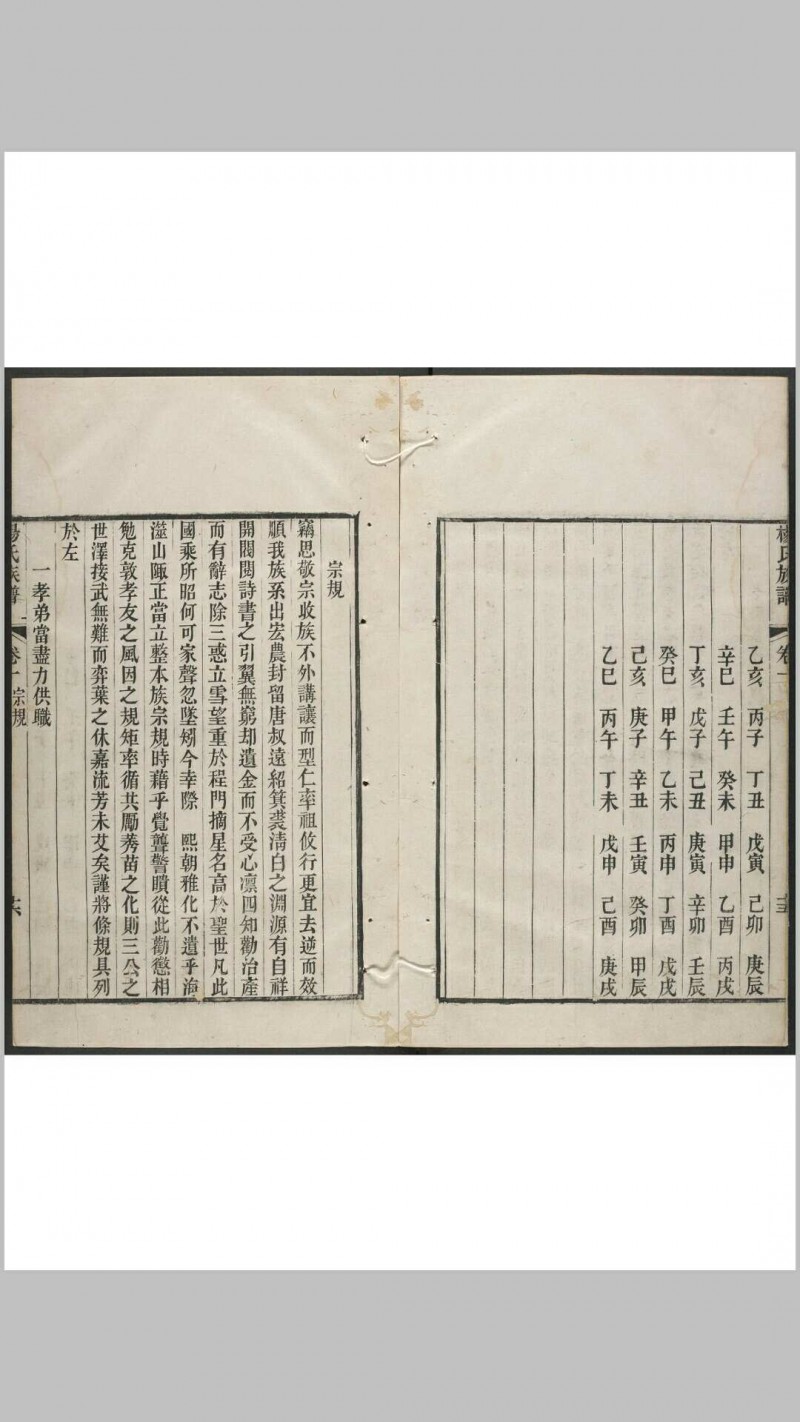 楊氏族譜 卷一 十五
乙亥 丙子 丁丑 戊寅 己卯 庚辰
辛巳 壬午 癸未 甲申 乙酉 丙戌
丁亥 戊子 己丑 庚寅 辛卯 壬辰
癸巳 甲午 乙未 丙申 丁酉 戊戌
己亥 庚子 辛丑 壬寅 癸卯 甲辰
乙巳 丙午 丁未 戊申 己酉 庚戌
宗規
竊思敬宗收族不外講讓而型仁率祖攸行更宜去逆而效
順我族系出宏農封留唐叔遠紹箕裘淸白之淵源有自祥
開閥閱詩書之引翼無窮却遺金而不受心凛四知勸治產
而有辭志除三惑立雪望重於程門摘星名高於聖世凡此
國乘所昭何可家聲忽墜矧今幸際 熙朝雅化不遺乎海
澨山陬正當立整本族宗規時藉乎覺聾警聵從此勸懲相
勉克敦孝友之風因之規矩率循共勵莠苗之化則三公之
世澤接武無難而弈葉之休嘉流芳未艾矣謹將條規具列
於左
一孝弟當盡力供職
楊氏族譜 卷一宗規 十六